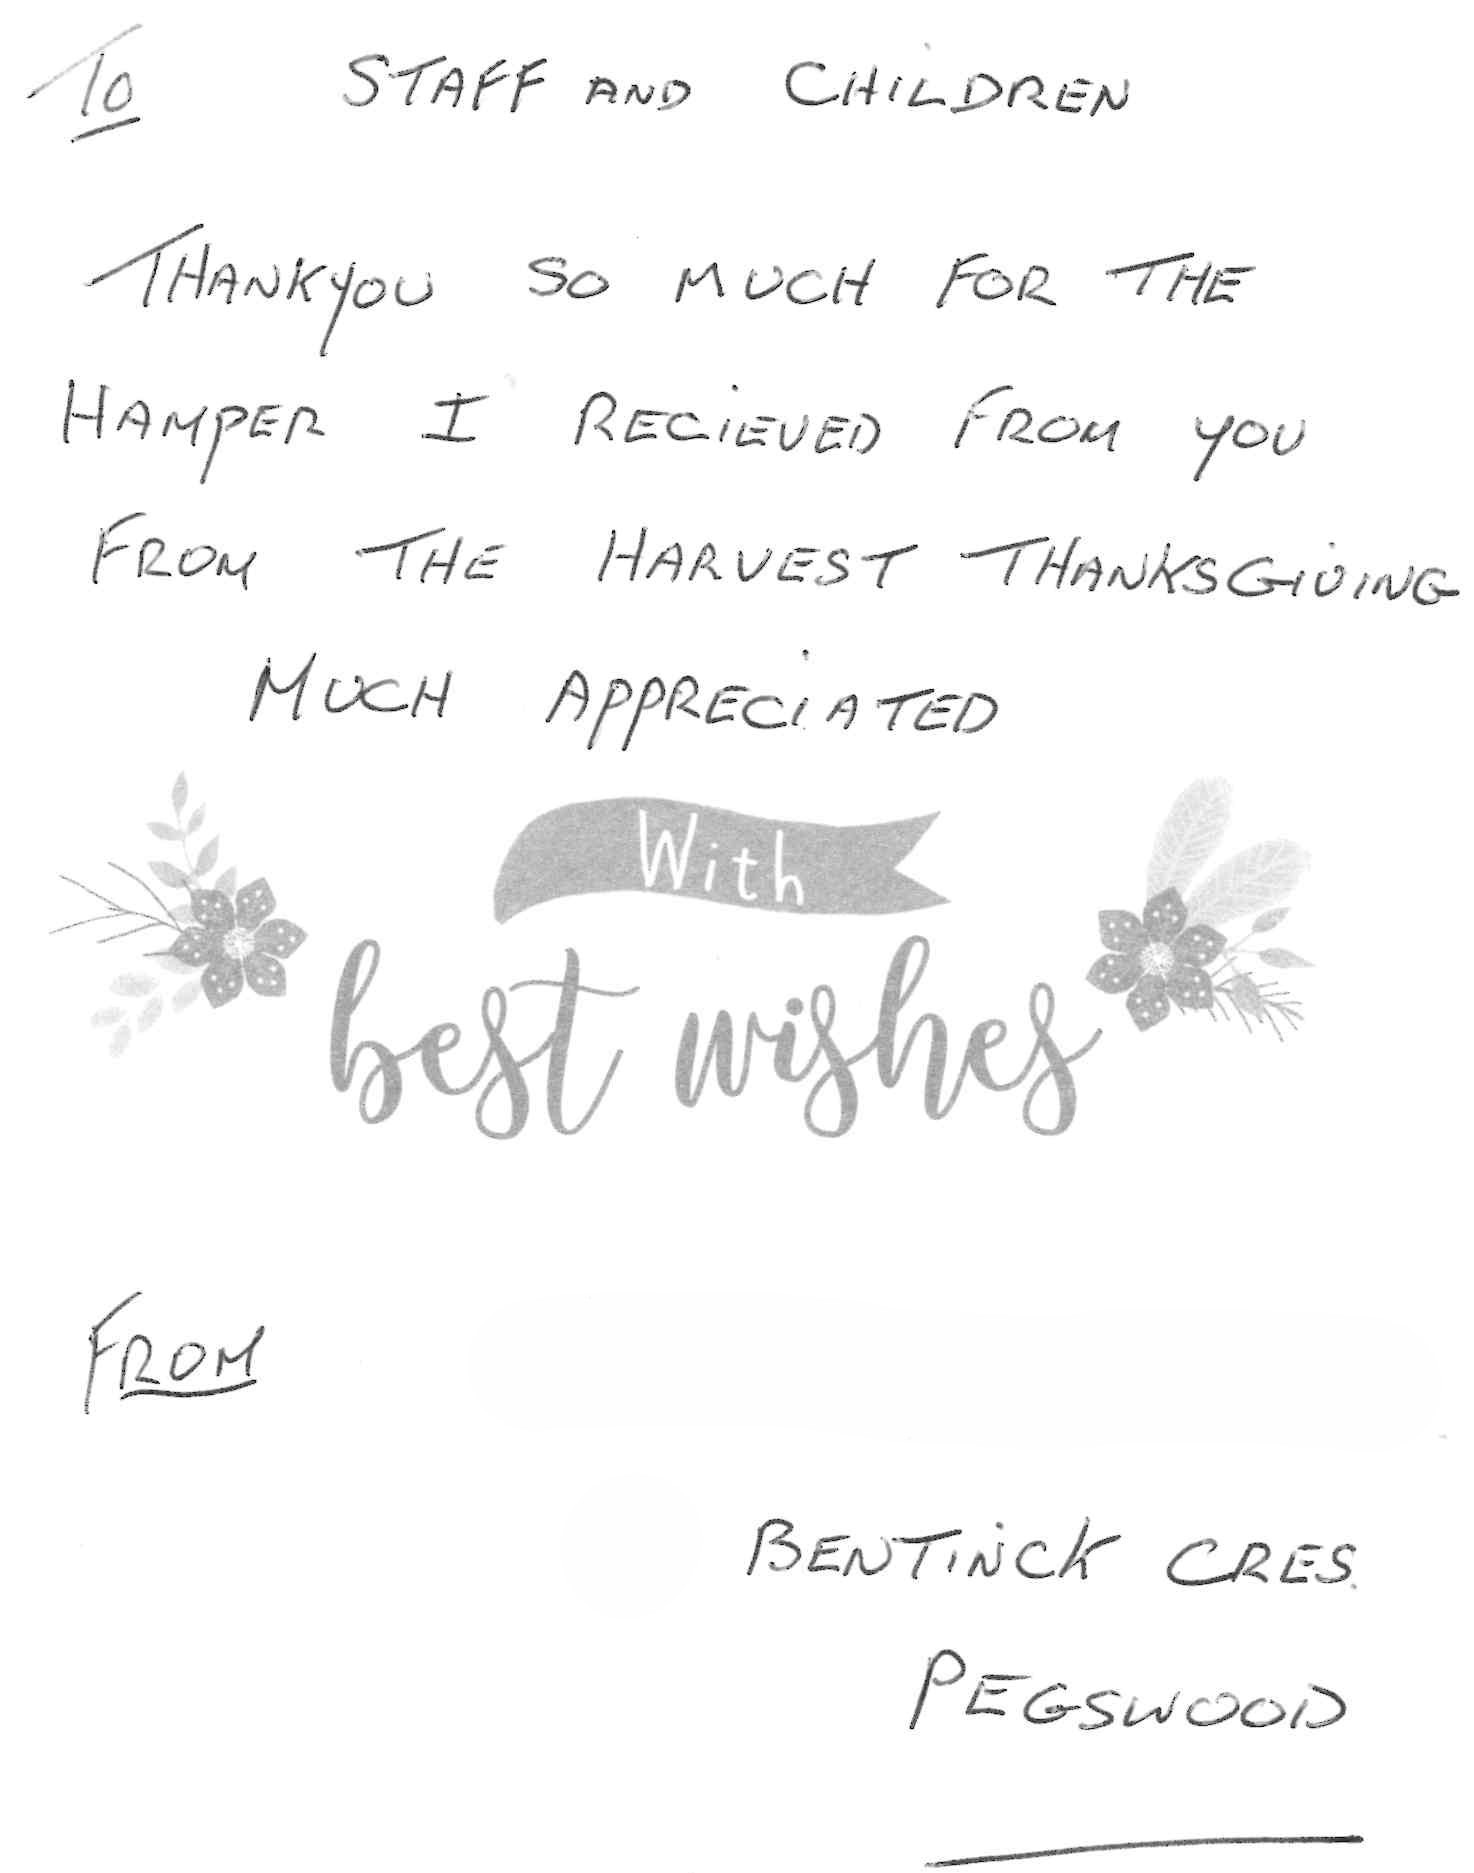 To STAFF AND CHILDREN
THANKYOU SO MUCH FOR THE
HAMPER I RECIEVED FROM YOU
FROM THE HARVEST THANKSGIVING
MUCH APPRECIATED
With
best wishes
FROM
BENTINCK CRES.
PEGSWOOD